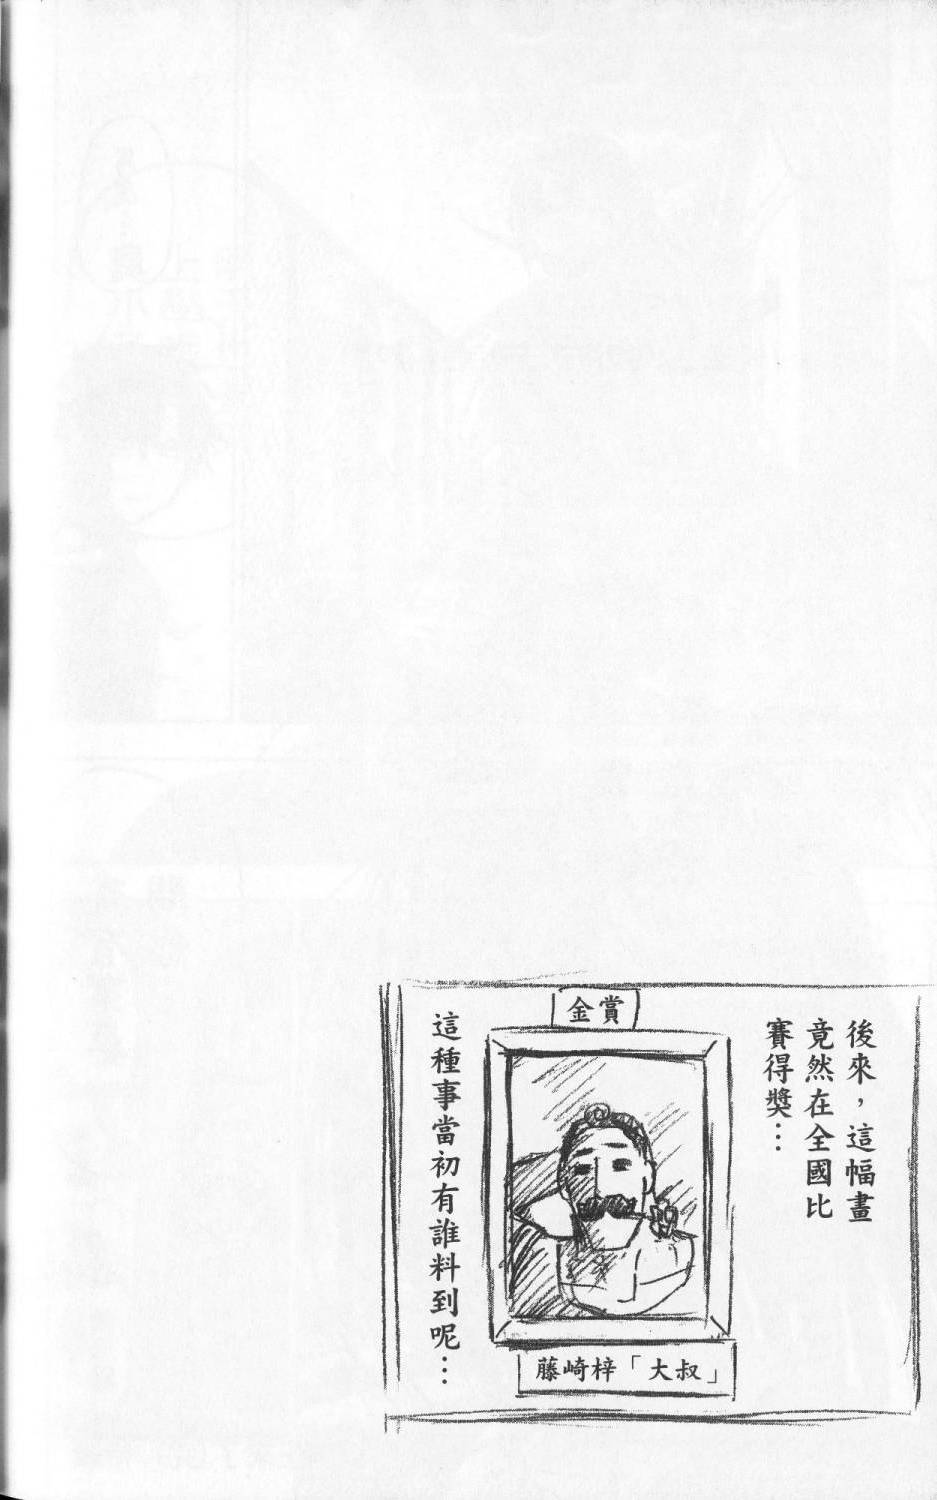 後來，這幅畫
竟然在全國比
賽得獎…
金賞
藤崎梓「大叔」
這種事當初有誰料到呢…